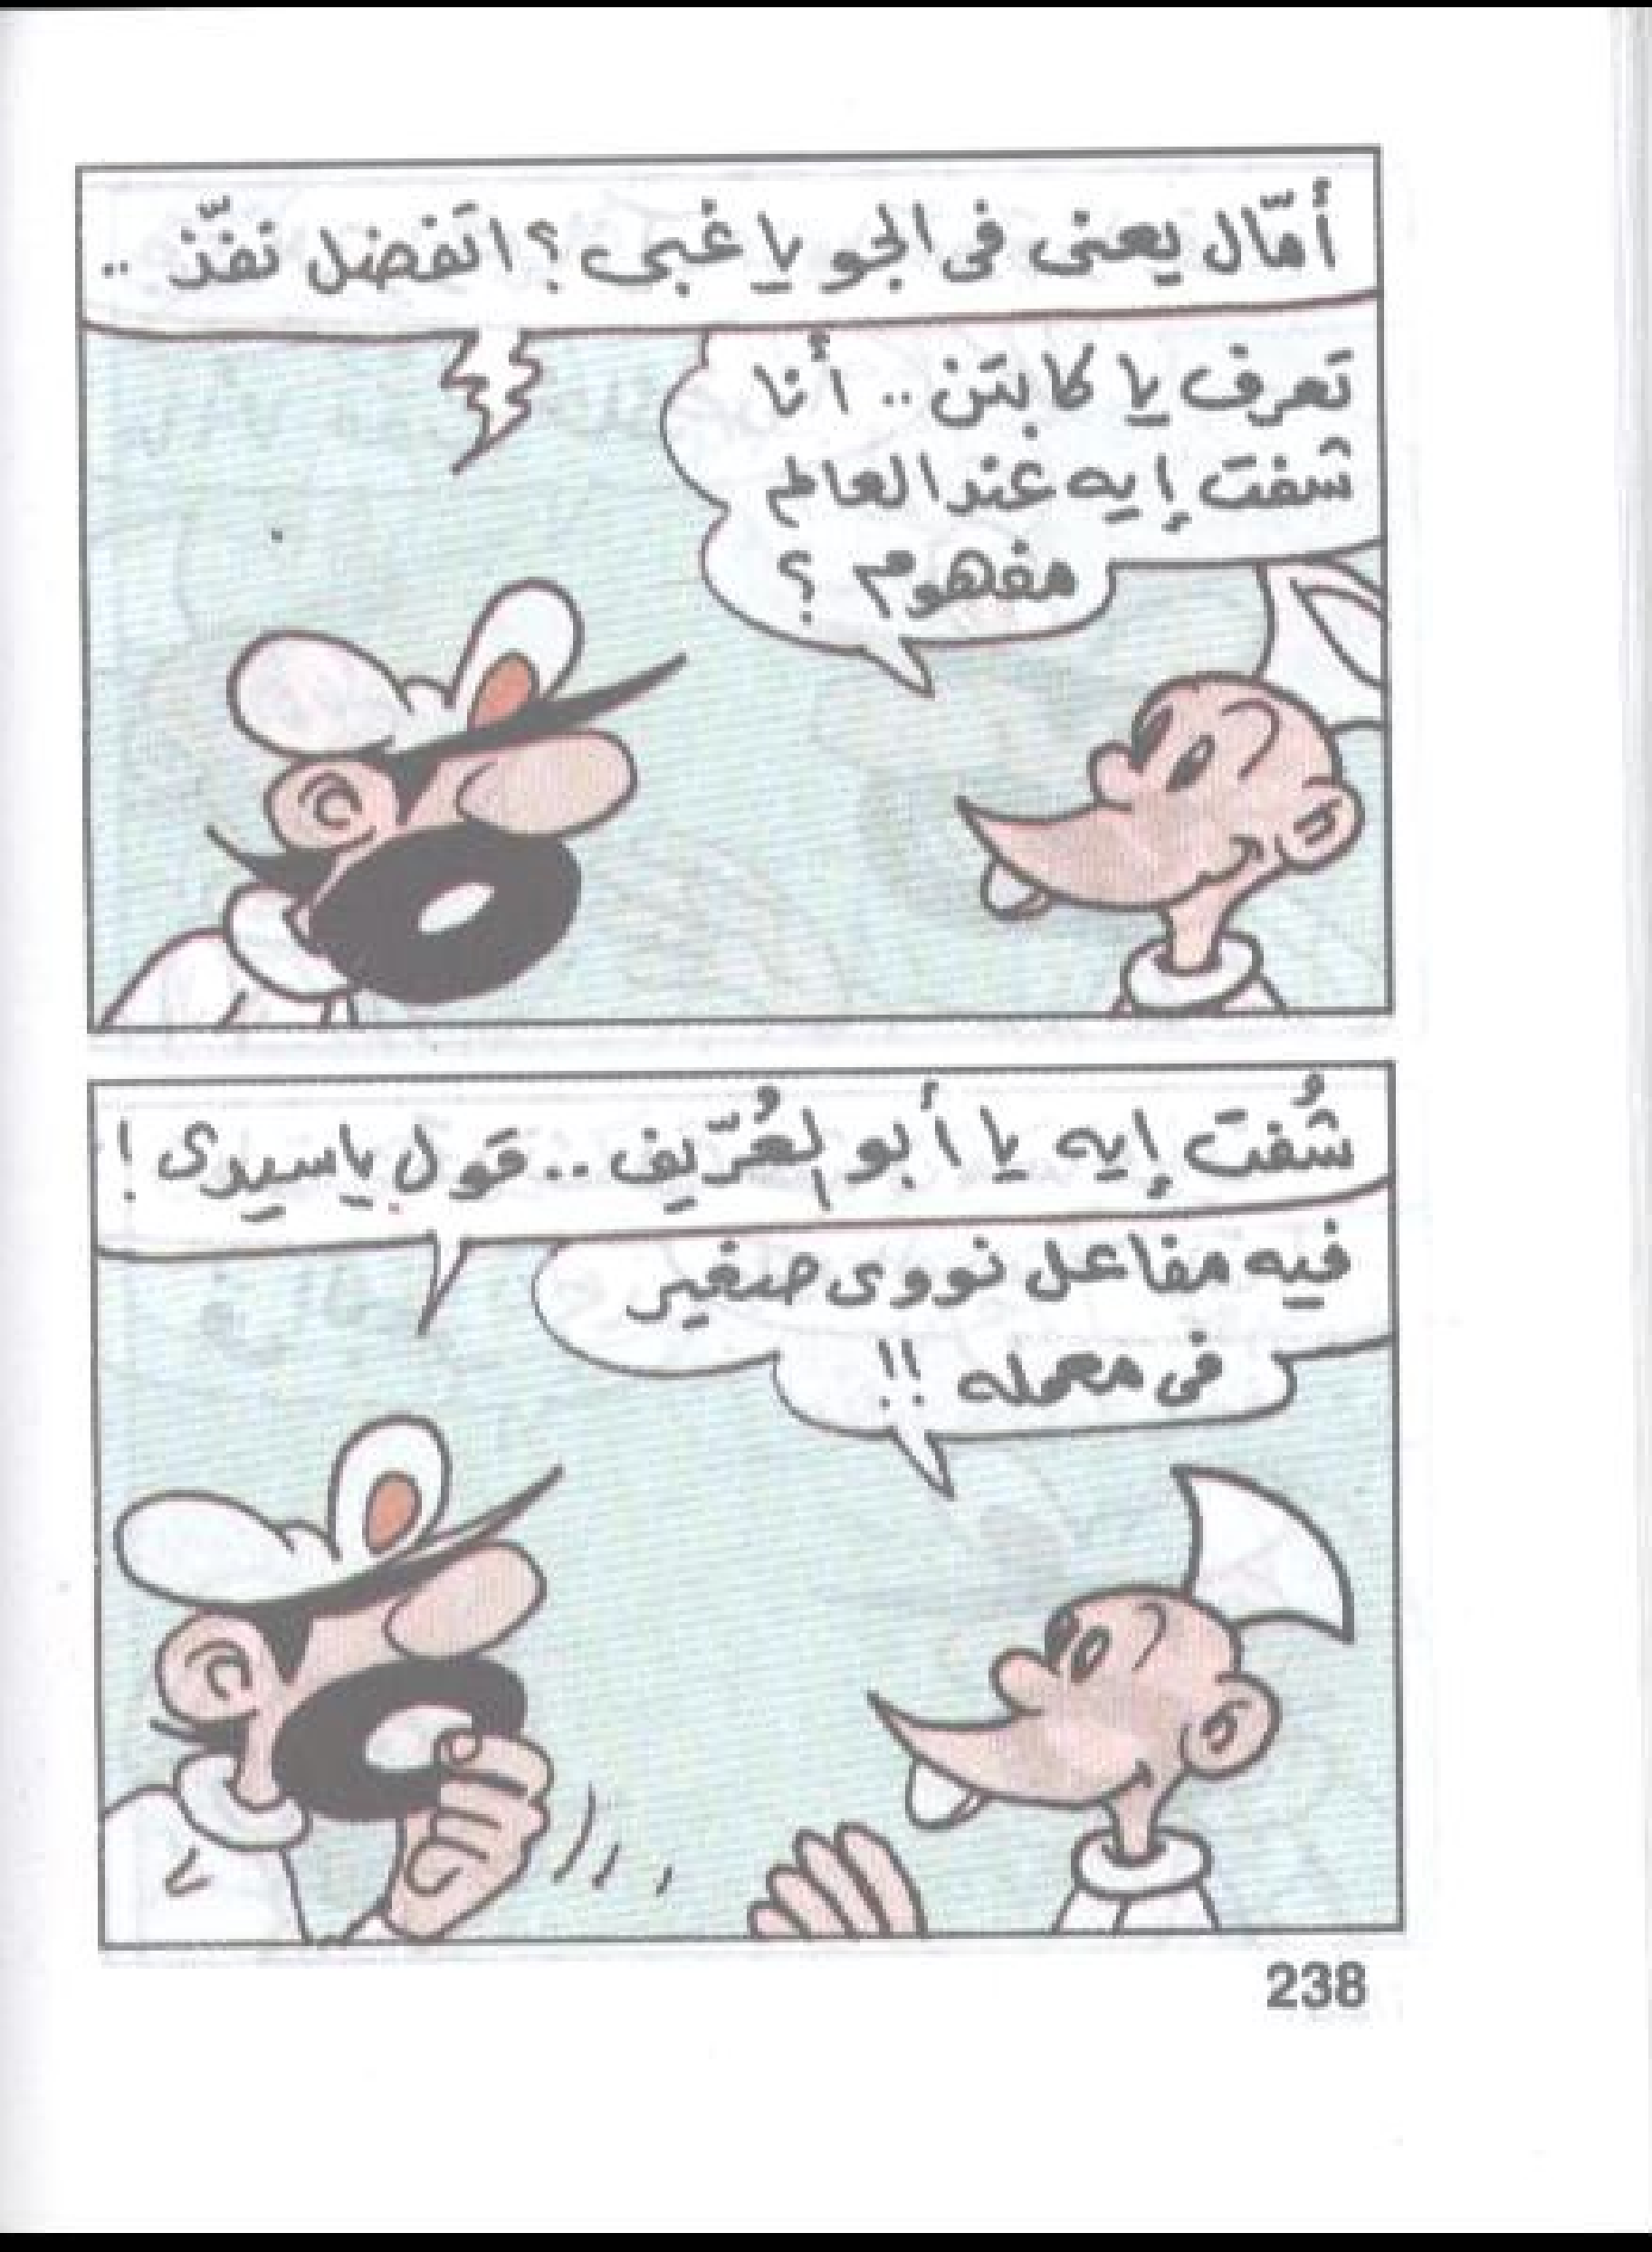 أمّال يعنى فى الجو يا غبى ؟ اتفضل نفّذ ..
تعرف يا كابتن .. أنا
شفت إيه عند العالم
مفهوم ؟
شُفت إيه يا أبو العُرّيف .. قول يا سيدى !
فيه مفاعل نووى صغير
فى معمله !!
238